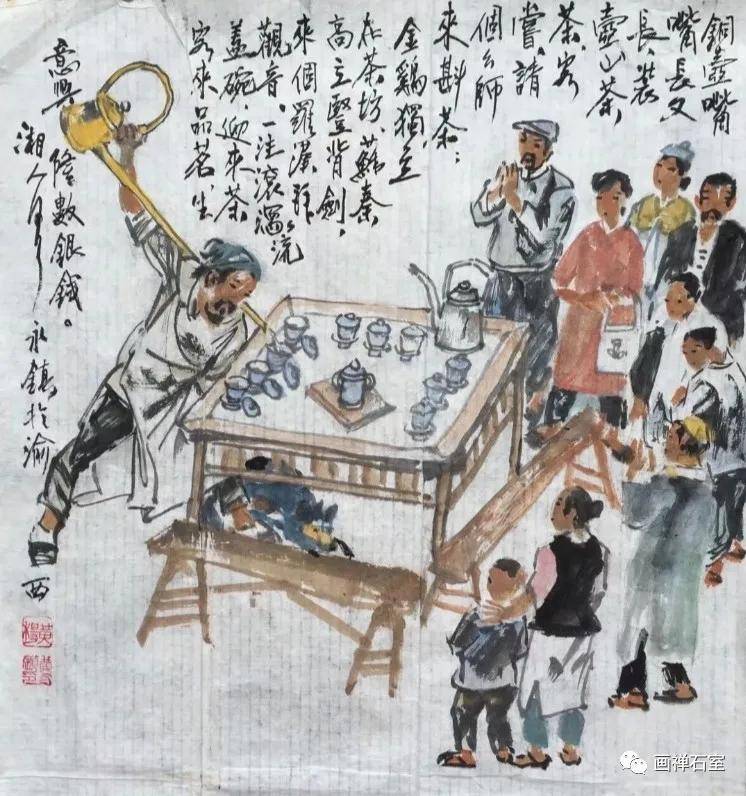 銅壺嘴
嘴長又
長、装
壺山茶
茶、客
嘗、請
個幺師
來斟茶；
金鷄獨立
在茶坊、蘇秦
高立豎背劍，
來個羅漢拜
觀音、一注滚流
蓋碗、迎來茶
客來品茗、生
意興
隆數銀錢。
湘人永鎮於渝
西
画禅石室